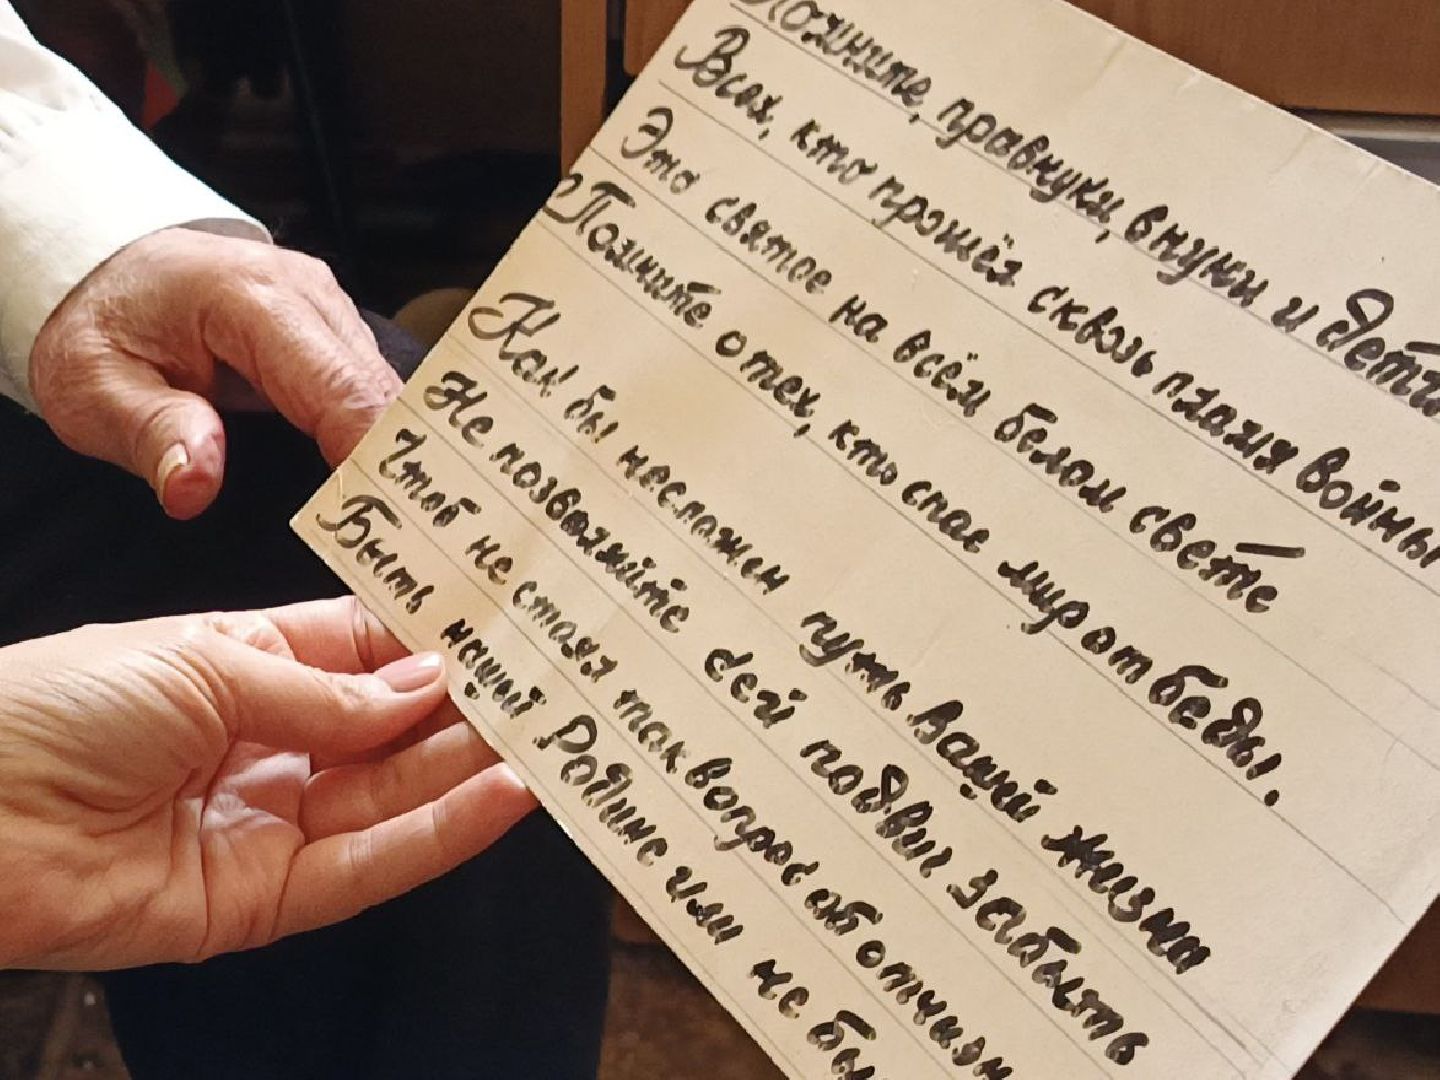 Помните, правнуки, внуки и дети
Всех, кто прошёл сквозь пламя войны
Это святое на всём белом свете
Помните о тех, кто спас мир от беды.
Как бы несложен путь вашей жизни
Не позволяйте сей подвиг забыть
Чтоб не стоял так вопрос об отчизн
Быть нашей Родине или не бы